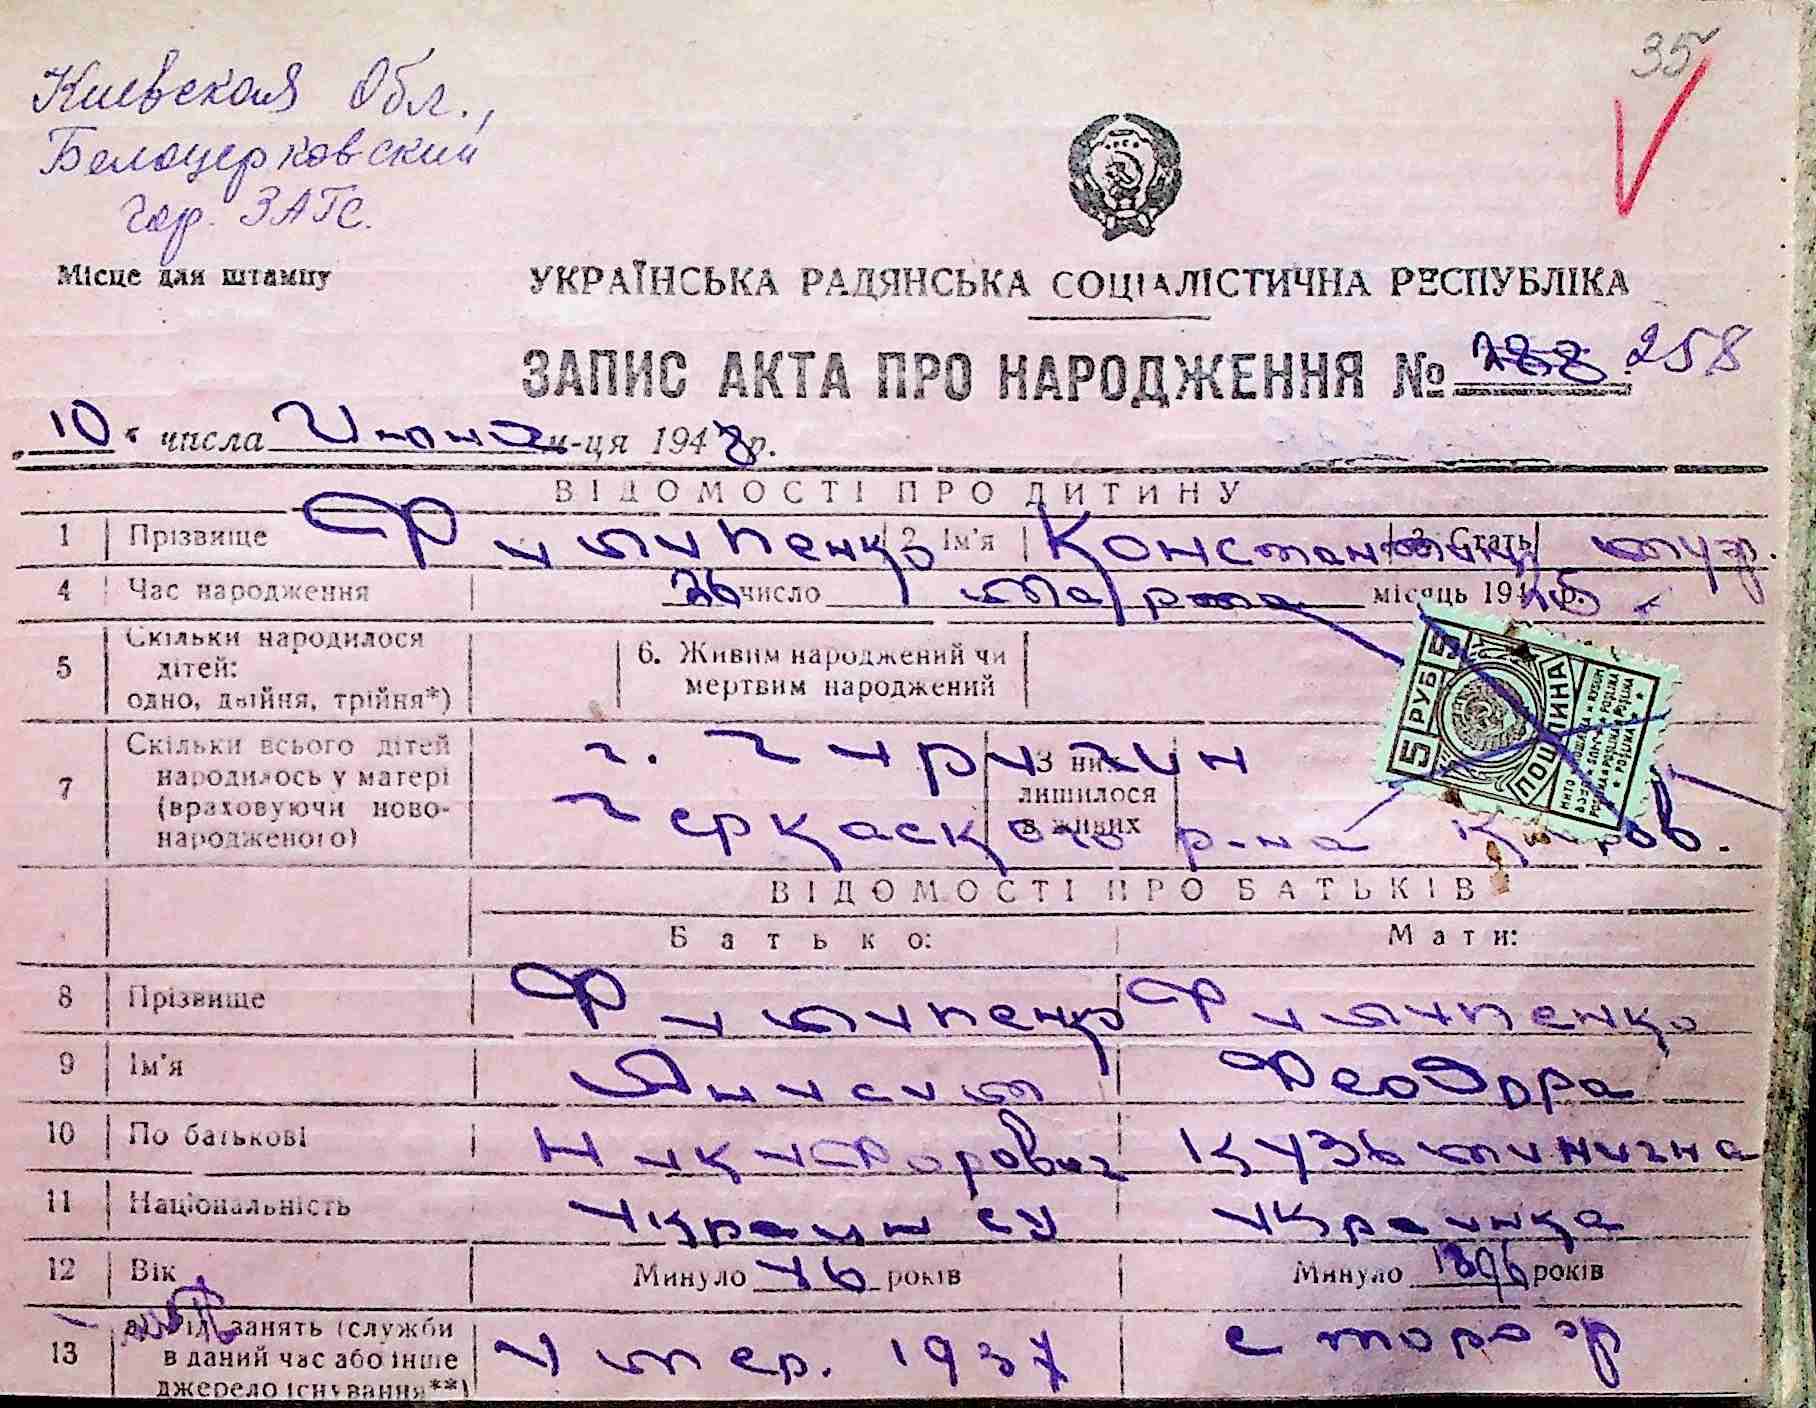 35
Киевская Обл.,
Белоцерковский
гор. ЗАГС.
Місце для штампу
УКРАЇНСЬКА РАДЯНСЬКА СОЦІАЛІСТИЧНА РЕСПУБЛІКА
ЗАПИС АКТА ПРО НАРОДЖЕННЯ № 258
10 числа Июня м-ця 1948 р.
ВІДОМОСТІ ПРО ДИТИНУ
1 Прізвище Филипенко 2 Ім'я Константин 3 Стать муж.
4 Час народження 26 число марта місяць 194 р.
5 Скільки народилося дітей: одно, двійня, трійня*) 6. Живим народжений чи мертвим народжений
7 Скільки всього дітей народилось у матері (враховуючи новонародженого) З них лишилося в живих
г. Чигирин
Черкаского р-на Киров.
5 РУБ 5
ПОШЛИНА
ВІДОМОСТІ ПРО БАТЬКІВ
Батько: Мати:
8 Прізвище Филипенко Филипенко
9 Ім'я Анисим Феодора
10 По батькові Никифорович Кузьминична
11 Національність украинец украинка
12 Вік Минуло 46 років Минуло 1896 років
13 занять (служби в даний час або інше джерело існування**) Умер. 1937 сторож